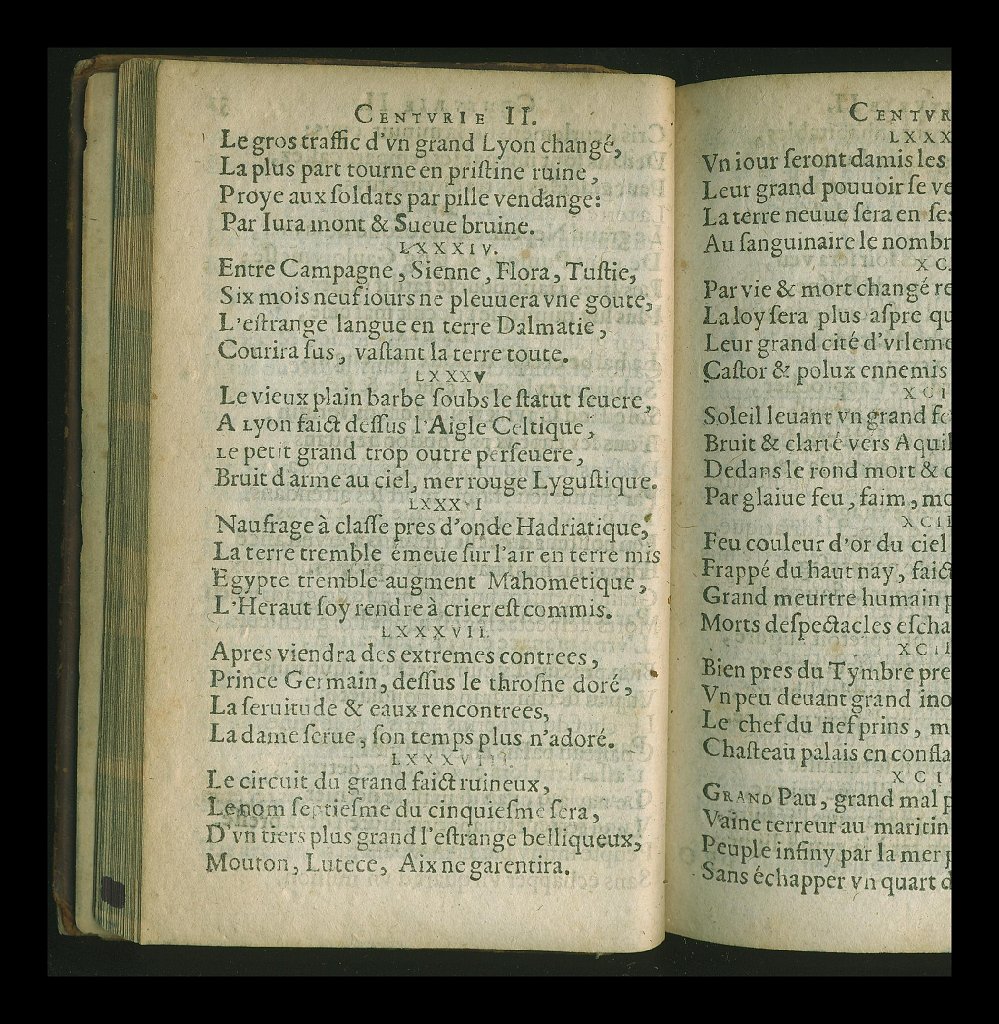 CENTVRIE II.
Le gros traffic d'vn grand Lyon changé,
La plus part tourne en pristine ruine,
Proye aux soldats par pille vendange:
Par Iura mont & Sueue bruine.
LXXXIV.
Entre Campagne, Sienne, Flora, Tustie,
Six mois neuf iours ne pleuuera vne goute,
L'estrange langue en terre Dalmatie,
Courira sus, vastant la terre toute.
LXXXV
Le vieux plain barbe soubs le statut seuere,
A Lyon faict dessus l'Aigle Celtique,
Le petit grand trop outre perseuere,
Bruit d'arme au ciel, mer rouge Lygustique.
LXXXVI
Naufrage à classe pres d'onde Hadriatique,
La terre tremble émeüe sur l'air en terre mis
Egypte tremble augment Mahometique,
L'Heraut soy rendre à crier est commis.
LXXXVII.
Apres viendra des extremes contrees,
Prince Germain, dessus le throsne doré,
La seruitude & eaux rencontrees,
La dame serue, son temps plus n'adoré.
LXXXVIII.
Le circuit du grand faict ruineux,
Le nom septiesme du cinquiesme sera,
D'vn tiers plus grand l'estrange belliqueux,
Mouton, Lutece, Aix ne garentira.
CENTVR
LXXX
Vn iour seront damis les
Leur grand pouuoir se ve
La terre neuue sera en ses
Au sanguinaire le nombr
XC.
Par vie & mort changé re
La loy sera plus aspre qu
Leur grand cité d'vrleme
Castor & polux ennemis
XCI
Soleil leuant vn grand fe
Bruit & clarté vers Aquil
Dedans le rond mort & c
Par glaiue feu, faim, mo
XCII
Feu couleur d'or du ciel
Frappé du haut nay, faict
Grand meurtre humain p
Morts despectacles escha
XCII
Bien pres du Tymbre pre
Vn peu deuant grand ino
Le chef du nef prins, m
Chasteau palais en confla
XCI
GRAND Pau, grand mal p
Vaine terreur au maritin
Peuple infiny par la mer p
Sans échapper vn quart d